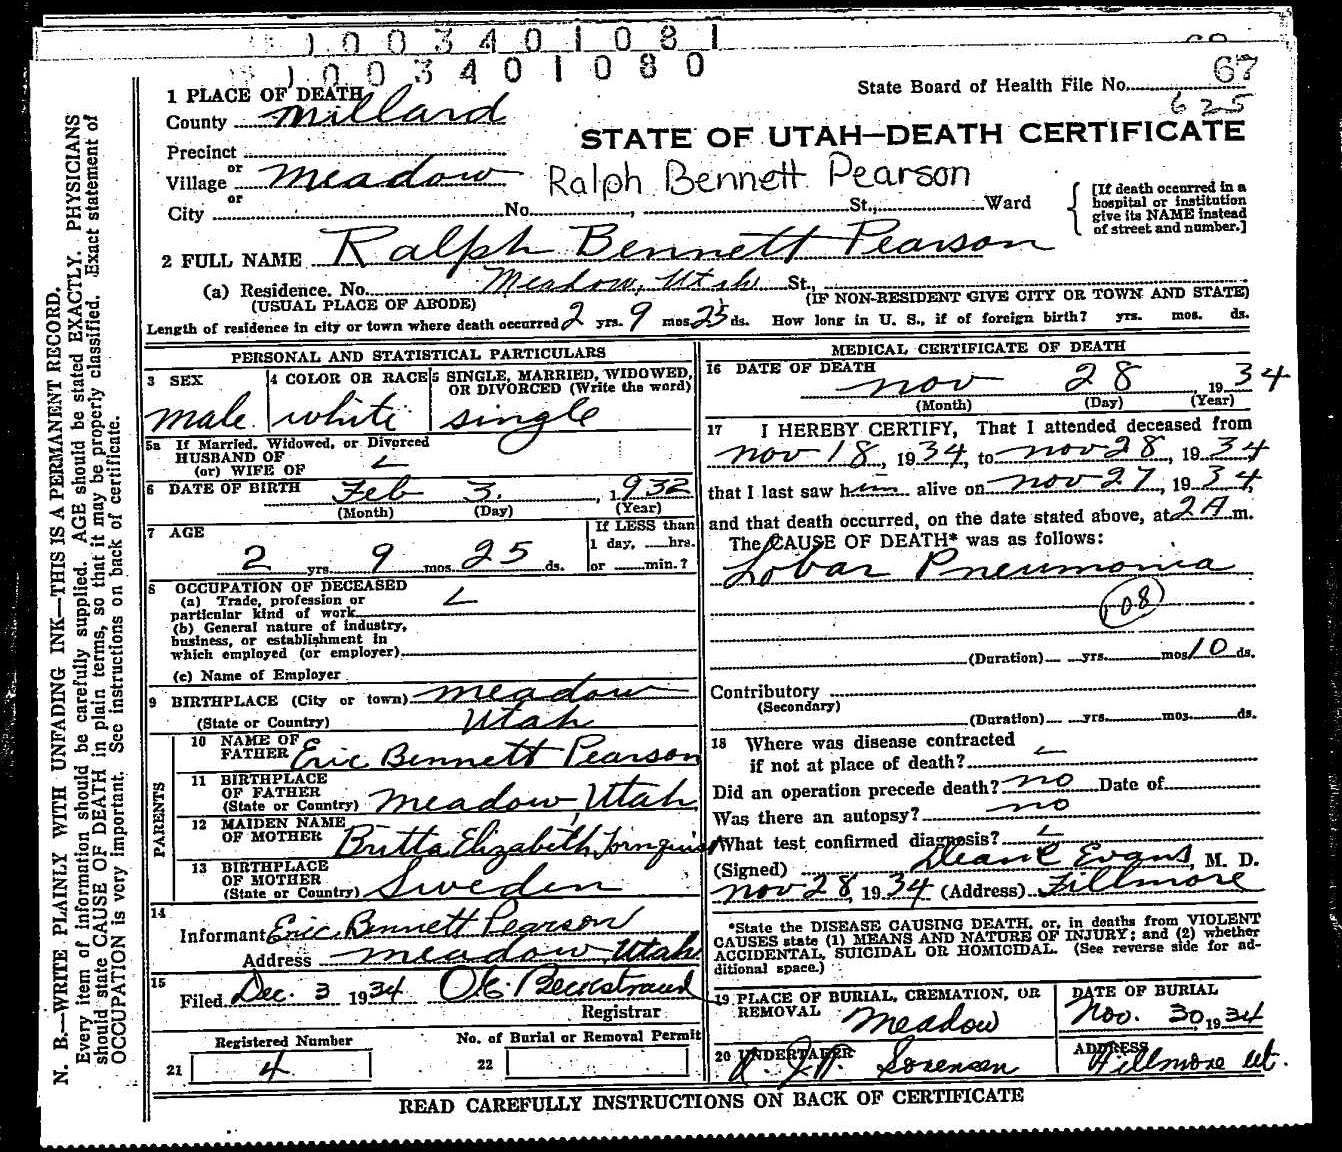 1003401081
1003401080
State Board of Health File No. 67
625
1 PLACE OF DEATH
County Millard
STATE OF UTAH—DEATH CERTIFICATE
Precinct
or
Village Meadow
Ralph Bennett Pearson
or
City No. , St., Ward
[If death occurred in a hospital or institution give its NAME instead of street and number.]
2 FULL NAME Ralph Bennett Pearson
(a) Residence. No. Meadow, Utah St.,
(USUAL PLACE OF ABODE) (IF NON-RESIDENT GIVE CITY OR TOWN AND STATE)
Length of residence in city or town where death occurred 2 yrs. 9 mos. 25 ds. How long in U. S., if of foreign birth? yrs. mos. ds.
PERSONAL AND STATISTICAL PARTICULARS
3 SEX
male
4 COLOR OR RACE
white
5 SINGLE, MARRIED, WIDOWED, OR DIVORCED (Write the word)
single
5a If Married, Widowed, or Divorced
HUSBAND OF
(or) WIFE OF
6 DATE OF BIRTH Feb 3. , 1932
(Month) (Day) (Year)
7 AGE
2 yrs. 9 mos. 25 ds.
If LESS than
1 day, hrs.
or min.?
8 OCCUPATION OF DECEASED
(a) Trade, profession or
particular kind of work
(b) General nature of industry,
business, or establishment in
which employed (or employer)
(c) Name of Employer
9 BIRTHPLACE (City or town) Meadow
(State or Country) Utah
PARENTS
10 NAME OF FATHER Eric Bennett Pearson
11 BIRTHPLACE OF FATHER
(State or Country) Meadow, Utah
12 MAIDEN NAME OF MOTHER Britta Elizabeth Tornquist
13 BIRTHPLACE OF MOTHER
(State or Country) Sweden
14
Informant Eric Bennett Pearson
Address Meadow Utah
15
Filed Dec. 3 1934
Registrar
Registered Number
21 4
No. of Burial or Removal Permit
22
MEDICAL CERTIFICATE OF DEATH
16 DATE OF DEATH
Nov 28 , 1934
(Month) (Day) (Year)
17 I HEREBY CERTIFY, That I attended deceased from
Nov 18, 1934, to Nov 28, 1934
that I last saw him alive on Nov 27, 1934,
and that death occurred, on the date stated above, at 2A m.
The CAUSE OF DEATH* was as follows:
Lobar Pneumonia
108
(Duration) yrs. mos. 10 ds.
Contributory
(Secondary)
(Duration) yrs. mos. ds.
18 Where was disease contracted
if not at place of death?
Did an operation precede death? no Date of
Was there an autopsy? no
What test confirmed diagnosis?
(Signed) Evans, M. D.
Nov 28, 1934 (Address) Fillmore
*State the DISEASE CAUSING DEATH, or, in deaths from VIOLENT
CAUSES state (1) MEANS AND NATURE OF INJURY; and (2) whether
ACCIDENTAL, SUICIDAL OR HOMICIDAL. (See reverse side for ad-
ditional space.)
19 PLACE OF BURIAL, CREMATION, OR
REMOVAL Meadow
DATE OF BURIAL
Nov. 30, 1934
20 UNDERTAKER
Sorensen
ADDRESS
Fillmore Ut.
READ CAREFULLY INSTRUCTIONS ON BACK OF CERTIFICATE
N. B.—WRITE PLAINLY WITH UNFADING INK—THIS IS A PERMANENT RECORD.
Every item of information should be carefully supplied. AGE should be stated EXACTLY. PHYSICIANS
should state CAUSE OF DEATH in plain terms, so that it may be properly classified. Exact statement of
OCCUPATION is very important. See instructions on back of certificate.